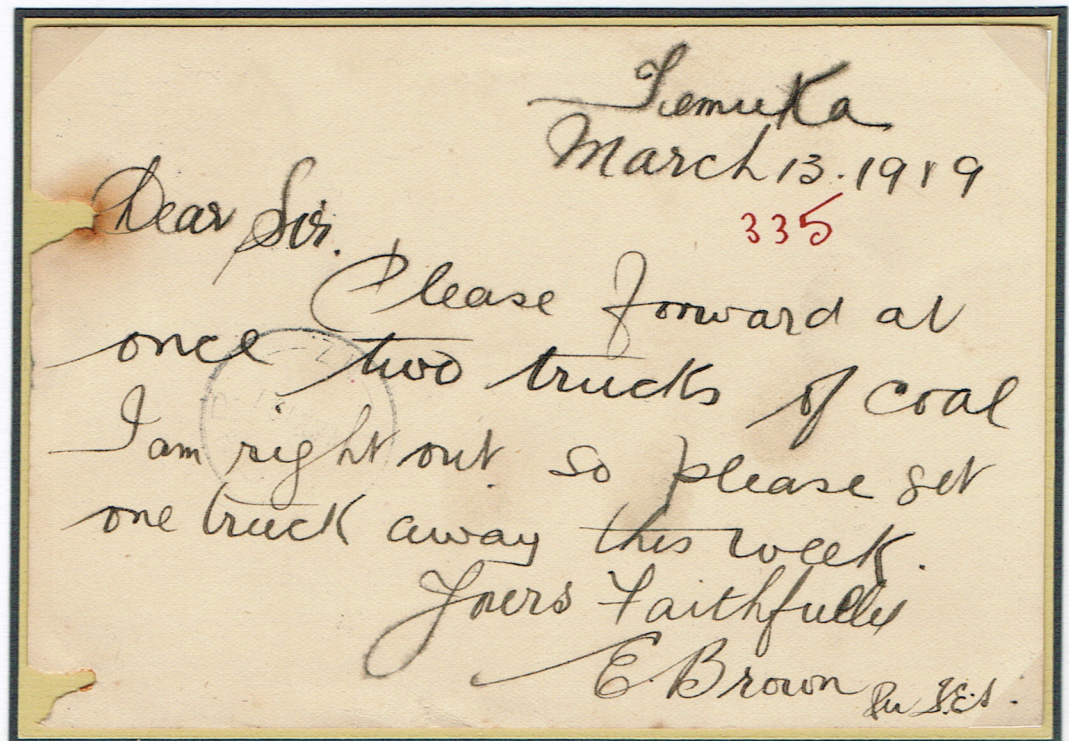 Temuka
March 13. 1919
335
Dear Sir.
Please forward at
once two trucks of coal
I am right out. so please get
one truck away this week.
Yours Faithfully
E. Brown